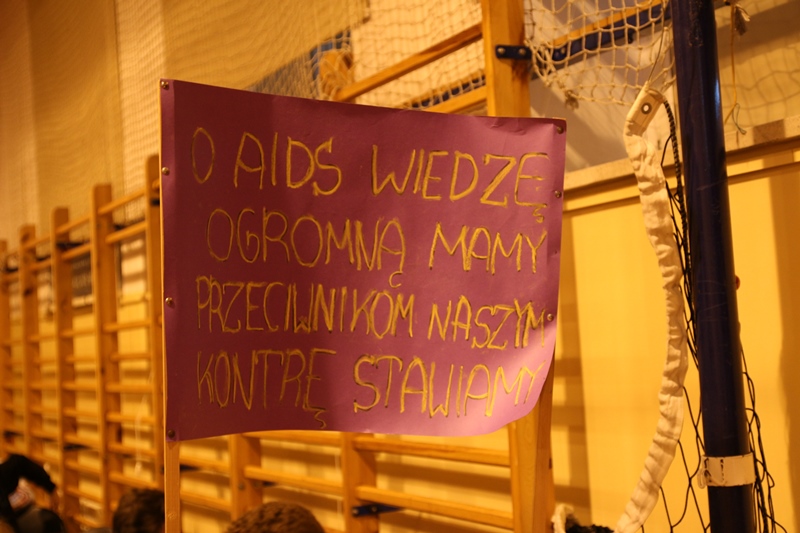 O AIDS WIEDZĘ
OGROMNĄ MAMY
PRZECIWNIKOM NASZYM
KONTRĘ STAWIAMY